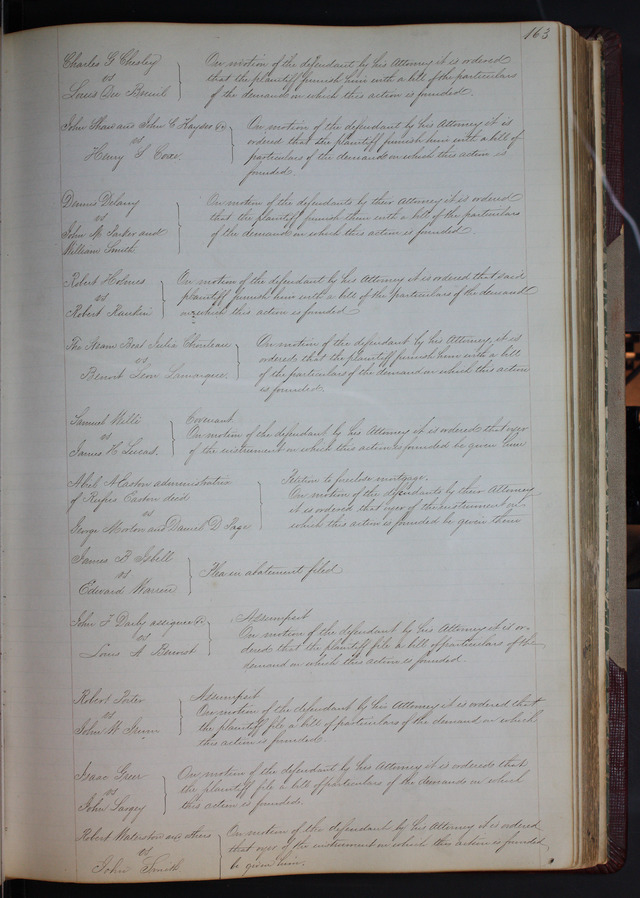 163
Charles G Chesley
vs
Louis Du Breuil
On motion of the defendant by his Attorney it is ordered
that the plaintiff furnish him with a bill of the particulars
of the demand on which this action is founded.
John Shaw and John C Kayser &c
vs
Henry S Coxe.
On motion of the defendant by his Attorney it is
ordered that the plaintiff furnish him with a bill of
particulars of the demand on which this action is
founded.
Dennis Delany
vs
John M Parker and
William Smith
On motion of the defendants by their Attorney it is ordered
that the plaintiff furnish them with a bill of the particulars
of the demand on which this action is founded
Robert Holmes
vs
Robert Rankin
On motion of the defendant by his Attorney it is ordered that said
plaintiff furnish him with a bill of the particulars of the demand
on which this action is founded
The Steam Boat Julia Chouteau
vs.
Benoit Leon Lamarque.
On motion of the defendant by his Attorney, it is
ordered that the plaintiff furnish him with a bill
of the particulars of the demand on which this action
is founded.
Samuel Willi
vs
James H Lucas.
Covenant.
On motion of the defendant by his Attorney it is ordered that oyer
of the instrument on which this action is founded be given him
Abel N Caston administratrix
of Rufus Caston decd.
vs
George Morton and Daniel D Page
Petition to foreclose mortgage.
On motion of the defendants by their Attorney
it is ordered that oyer of the instrument on
which this action is founded be given them
James B Isbell
vs
Edward Warren
Plea in abatement filed
John F Darby assignee &c
vs
Louis A Benoist
Assumpsit
On motion of the defendant by his Attorney it is or-
dered that the plaintiff file a bill of particulars of the
demand on which this action is founded.
Robert Porter
vs
John W
Assumpsit
On motion of the defendant by his Attorney it is ordered that
the plaintiff file a bill of particulars of the demand on which
this action is founded
Isaac Greer
vs
John Largey
On motion of the defendant by his Attorney it is ordered that
the plaintiff file a bill of particulars of the demand on which
this action is founded.
Robert Waterston and others
vs
John Smith
On motion of the defendant by his Attorney it is ordered
that oyer of the instrument on which this action is founded
be given him.